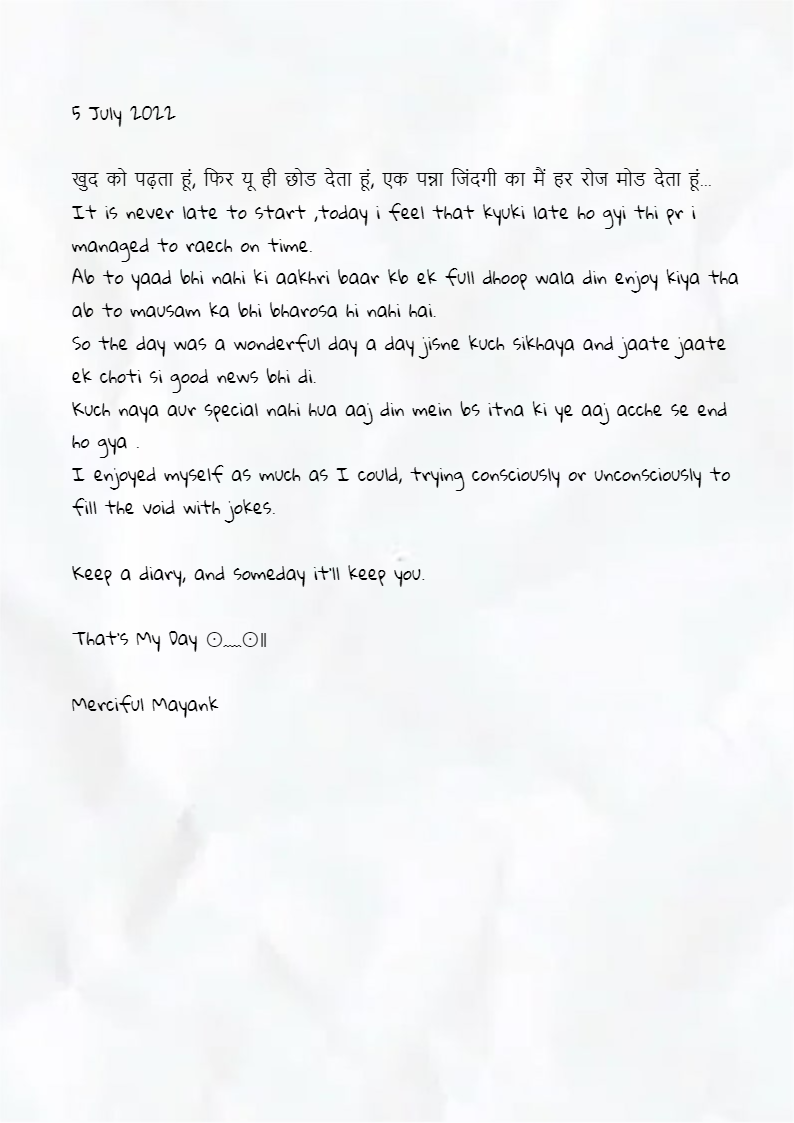 5 July 2022
खुद को पढ़ता हूं, फिर यू ही छोड देता हूं, एक पन्ना जिंदगी का मैं हर रोज मोड देता हूं...
It is never late to start ,today i feel that kyuki late ho gyi thi pr i
managed to raech on time.
Ab to yaad bhi nahi ki aakhri baar kb ek full dhoop wala din enjoy kiya tha
ab to mausam ka bhi bharosa hi nahi hai.
So the day was a wonderful day a day jisne kuch sikhaya and jaate jaate
ek choti si good news bhi di.
Kuch naya aur special nahi hua aaj din mein bs itna ki ye aaj acche se end
ho gya .
I enjoyed myself as much as I could, trying consciously or unconsciously to
fill the void with jokes.
Keep a diary, and someday it'll keep you.
That's My Day ⊙﹏⊙||
Merciful Mayank